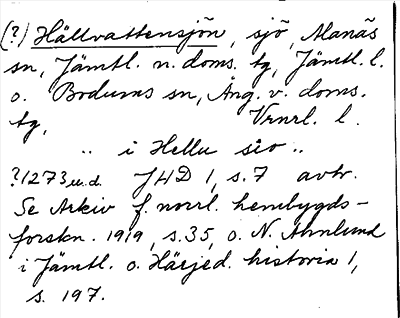 (?) Hällvattensjön, sjö, Alanäs
sn, Jämtl. n. doms. tg, Jämtl. l.
o. Bodums sn, Ång. v. doms.
tg, Vrnrl. l.
.. i Hellu sio ..
?1273 u.d. JHD 1, s. 7 avtr.
Se Arkiv f. norrl. hembygds-
forskn. 1919, s. 35, o. N. Ahnlund
i Jämtl. o. Härjed. historia 1,
s. 197.